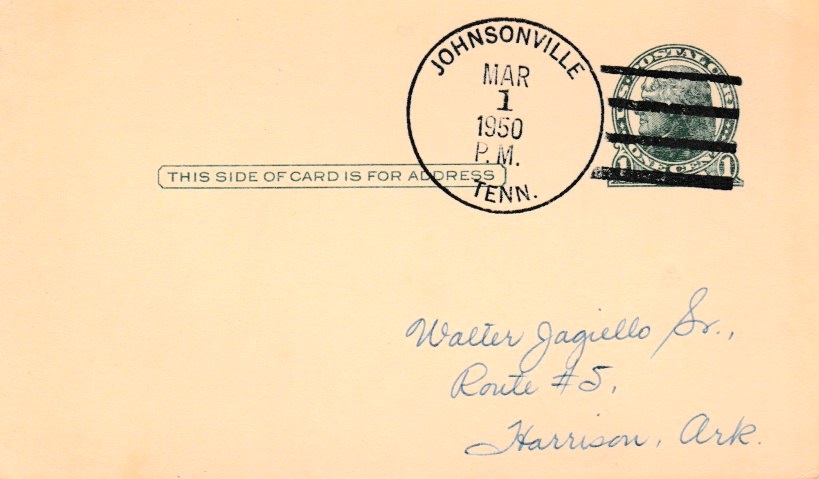 JOHNSONVILLE
MAR
1
1950
P.M.
TENN.
THIS SIDE OF CARD IS FOR ADDRESS
1 1
Walter Jagiello Sr.,
Route #5,
Harrison, Ark.